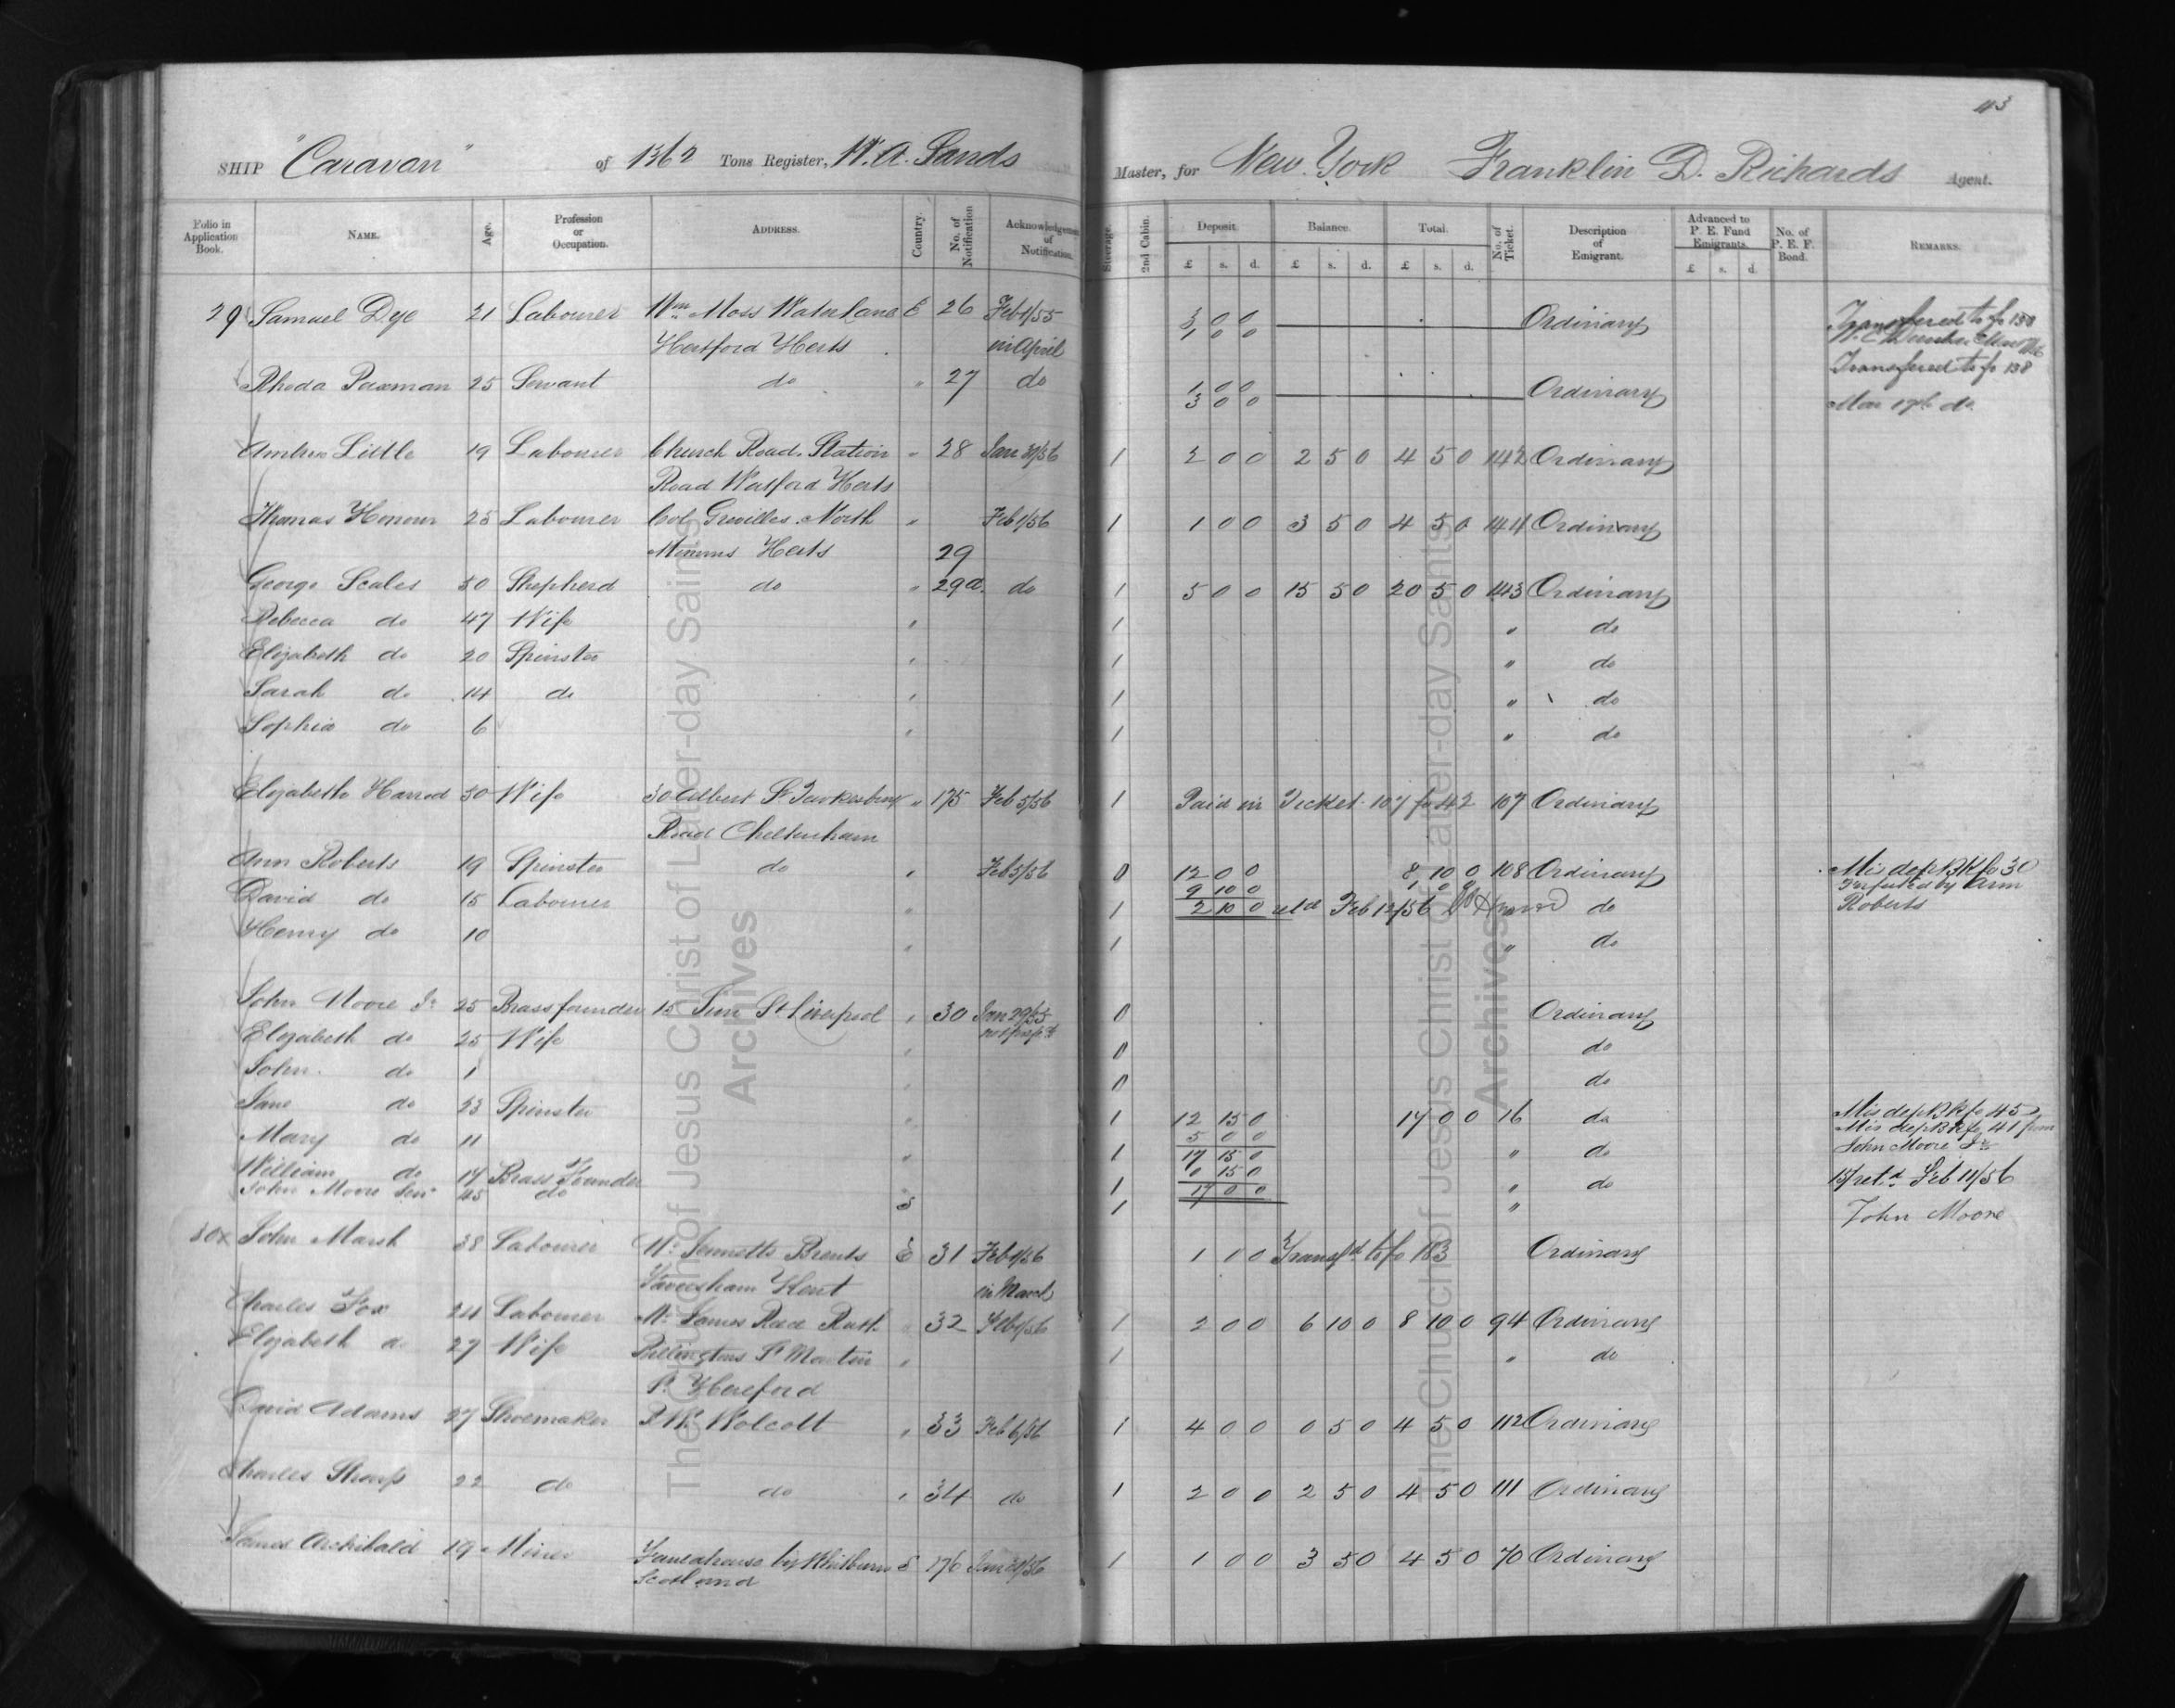 43
SHIP "Caravan" of 1362 Tons Register, W. A. Sands Master, for New York Franklin D. Richards Agent.
Folio in Application Book. NAME. Age. Profession or Occupation. ADDRESS. Country. No. of Notification Acknowledgement of Notification. Steerage. 2nd Cabin. Deposit £ s. d. Balance. £ s. d. Total. £ s. d. No. of Ticket. Description of Emigrant. Advanced to P. E. Fund Emigrants. £ s. d. No. of P. E. F. Bond. REMARKS.
29 Samuel Dye 21 Labourer Wm Moss Water Lane E 26 Feb 1/55 3 0 0 Ordinary Transfered to fo 138
Hertford Herts in April 1 0 0
Rhoda Paxman 25 Servant do " 27 do 1 0 0 Ordinary Transfered to fo 138
3 0 0 Mar 17th do
Ambrose Little 19 Labourer Church Road, Station " 28 Jan 31/56 1 2 0 0 2 5 0 4 5 0 142 Ordinary
Road Watford Herts
Thomas Honour 25 Labourer Col. Grevilles North " Feb 1/56 1 1 0 0 3 5 0 4 5 0 144 Ordinary
Mimms Herts 29
George Scales 50 Shepherd do " 29a do 1 5 0 0 15 5 0 20 5 0 143 Ordinary
Rebecca do 47 Wife " 1 " do
Elizabeth do 20 Spinster " 1 " do
Sarah do 14 do " 1 " do
Sophia do 6 " 1 " do
Elizabeth Harrod 50 Wife 30 Albert St Tewkesbury " 175 Feb 5/56 1 Paid in Ticket 107 fo 42 107 Ordinary
Road Cheltenham
Ann Roberts 19 Spinster do " Feb 5/56 0 12 0 0 8 10 0 108 Ordinary Mis dep Bk fo 30
9 10 0 1 0 0
David do 15 Labourer " 1 2 10 0 retd Feb 12/56 do Roberts
Henry do 10 " 1 " do
John Moore Jr 25 Brassfounder 15 St Liverpool " 30 Jan 29/55 0 Ordinary
Elizabeth do 25 Wife " 0 do
John do 1 " 0 do
Jane do 23 Spinster " 1 12 15 0 17 0 0 16 do Mis dep Bk fo 45
5 0 0 Mis dep Bk fo 41 from
Mary do 11 " 1 17 15 0 " do John Moore Jr
0 15 0
William do 17 Brass Founder 1 17 0 0 " do 15/ retd Feb 11/56
John Moore Senr 45 do 1 " John Moore
30 John Marsh 38 Labourer Mr Brents E 31 Feb 1/56 1 0 0 Transfd to fo 183 Ordinary
Faversham Kent in March
Charles Fox 24 Labourer Mr James " 32 Feb 1/56 1 2 0 0 6 10 0 8 10 0 94 Ordinary
Elizabeth do 27 Wife St Martin " 1 " do
Hereford
David Adams 27 Shoemaker Wolcott " 33 Feb 6/56 1 4 0 0 0 5 0 4 5 0 112 Ordinary
Charles Sharp 22 do do " 34 do 1 2 0 0 2 5 0 4 5 0 111 Ordinary
James Archibald 19 Miner by Whitburn S 176 Jan 31/56 1 1 0 0 3 5 0 4 5 0 70 Ordinary
Scotland
The Church of Jesus Christ of Latter-day Saints
Archives
The Church of Jesus Christ of Latter-day Saints
Archives